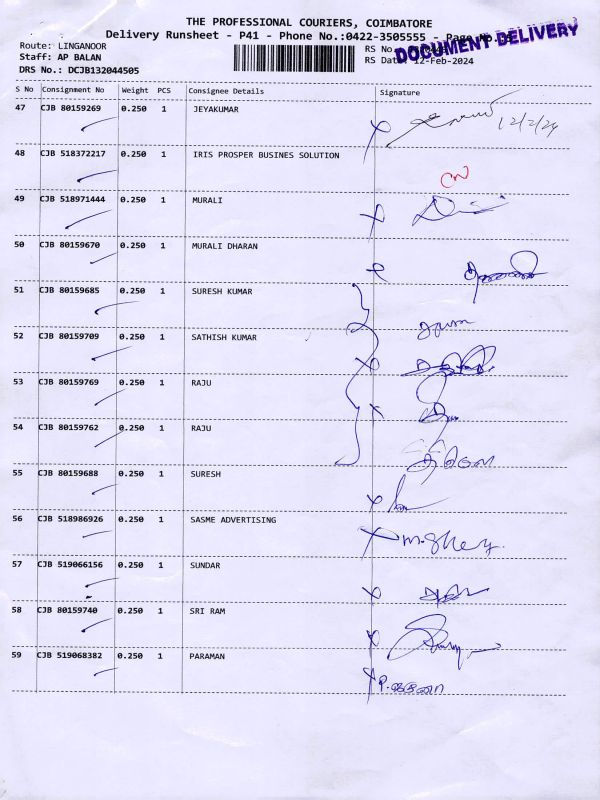 THE PROFESSIONAL COURIERS, COIMBATORE
Delivery Runsheet - P41 - Phone No.:0422-3505555 - Page No.
DOCUMENT DELIVERY
Route: LINGANOOR
RS No.
Staff: AP BALAN
RS Date 12-Feb-2024
DRS No.: DCJB132044505
S No Consignment No Weight PCS Consignee Details Signature
47 CJB 80159269 0.250 1 JEYAKUMAR 12/2/24
48 CJB 518372217 0.250 1 IRIS PROSPER BUSINES SOLUTION
49 CJB 518971444 0.250 1 MURALI
50 CJB 80159670 0.250 1 MURALI DHARAN
51 CJB 80159685 0.250 1 SURESH KUMAR
52 CJB 80159709 0.250 1 SATHISH KUMAR
53 CJB 80159769 0.250 1 RAJU
54 CJB 80159762 0.250 1 RAJU
55 CJB 80159688 0.250 1 SURESH
56 CJB 518986926 0.250 1 SASME ADVERTISING
57 CJB 519066156 0.250 1 SUNDAR
58 CJB 80159740 0.250 1 SRI RAM
59 CJB 519068382 0.250 1 PARAMAN